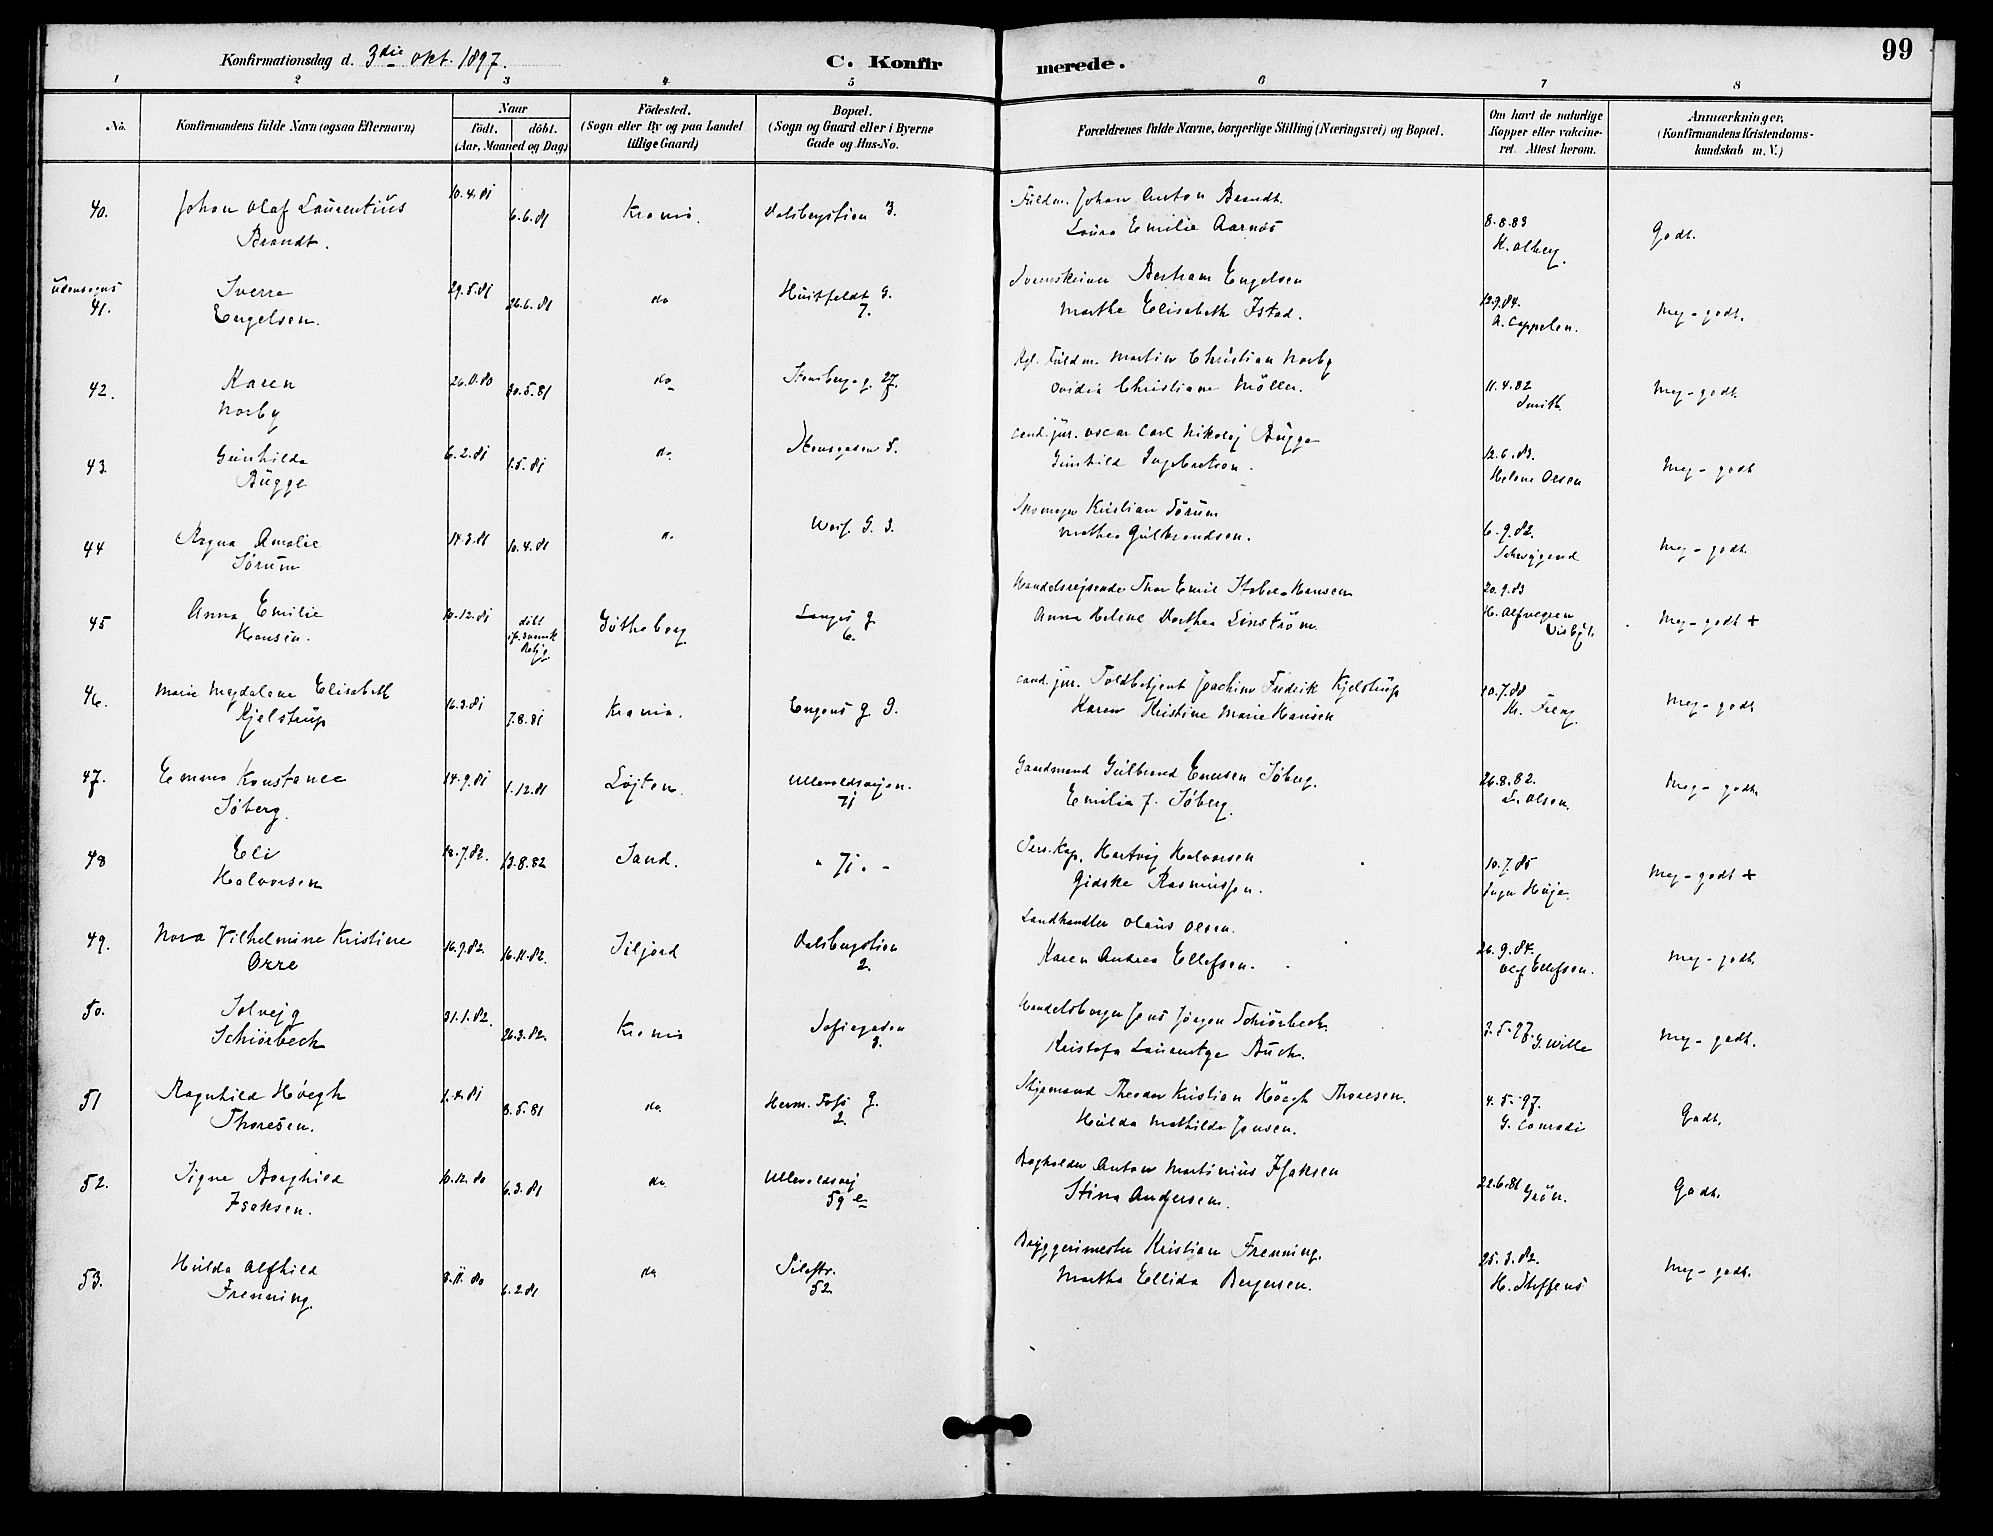 99
Konfirmationsdag d. 3die okt. 1897.
C. Konfirmerede.
1 2 3 4 5 6 7 8
No.
Konfirmandens fulde Navn (ogsaa Efternavn)
Naar
født. døbt.
(Aar, Maaned og Dag)
Fødested.
(Sogn eller By og paa Landet
tillige Gaard)
Bopæl.
(Sogn og Gaard eller i Byerne
Gade og Hus-No.
Forældrenes fulde Navne, borgerlige Stilling (Næringsvei) og Bopæl.
Om havt de naturlige
Kopper eller vaccine-
ret. Attest herom.
Anmærkninger,
(Konfirmandens Kristendoms-
kundskab m. V.)
40. Johan Olaf Laurentius 10.4.81 6.6.81 Krania. Dalsbergstien 3. Fuldm. Johan Anton Brandt. 8.8.83 Godt.
Brandt. Laura Emilie Aarnös
Udensogns
41. Sverre 29.5.81 26.6.81 do Huitfeldt G. Bertram Engelsen 12.9.84. Meg-godt.
Engelsen. 7. Marthe Elisabeth Istad. A. Cappelen.
42. Karen 30.5.81 do Stensberg g. 27. Fuldm. Martin Christian Norby 11.4.82 Meg-godt.
Norby Ovidia Christiane Möller. Smith.
43. Gunhilda 6.2.81 1.5.81 do. Stensgaden 5. Cand. jur. Oscar Carl Nikolaj Bugge 12.6.83. Meg-godt
Bugge Gunhild Ingebretsen. Helene Olsen
44 Ragna Amalie 14.3.81 10.4.81 do G. 3. Kristian Sörum 6.9.82. Meg-godt.
Sörum Mathea Gulbrandsen. Schwÿgend
45 Anna Emilie 10.12.81 döbt Gøtheborg Langes g Handelsrejsende Thor Emil Hansen 20.9.83 Meg-godt +
Hansen. svensk 6. Anna Helene Dorthea Linström.
46. Marie Magdalene Elisabeth 16.3.81 7.8.81 Krania. Engens g 9. Cand. jur. Toldbetjent Joachim Fredrik Kjelstrup 10.7.88 Meg-godt
Kjelstrup Karen Kristine Marie Hansen
47. Emma Konstance 14.9.81 1.12.81 Løjten. Ullevoldsvejen. Gaardmand Gulbrand Evensen Söberg. 26.8.82. Meg-godt.
Söberg. 71 Emilia J. Söberg. L. Olsen.
48 Eli 18.7.82. 13.8.82 Sand. " 71. - Hartvig Halvorsen 10.7.85 Meg-godt +
Halvorsen Gidske Rasmussen.
49. Nora Vilhelmine Kristine 16.9.82. 16.11.82. Siljord Dalsbergstien Landhandler Olaus Olsen. 26.9.84. Meg-godt.
Orre 2. Karen Andrea Ellefsen. Olaf Ellefsen.
50. Solvejg 31.1.82. 26.3.82. Krania Sofiegaden Handelsborger Jens Jörgen Schiörbeck. 3.5.97. G. Wille Meg-godt.
Schiörbeck 9. Kristofa Buch.
51 Ragnhild Höegh 8.5.81 do. Herm. Foss g. Theodor Kristian Höegh Thoresen. 4.5.97. Godt.
Thoresen. 2. Hulda Mathilde Jensen. G. Conradi
52. Signe Borghild 10.12.80 6.3.81 do. Ullevoldsvej Bogholder Anton Martinius Isaksen 22.6.81 Grön. Godt.
Isaksen. 59 e Stina Andersen.
53. Hulda Alfhild 8.11.80 6.2.81 do Pilestr. Bryggerimester Kristian Frenning. 25.3.82. Meg-godt.
Frenning. 52. Martha Ellida Bergersen. H. Steffens